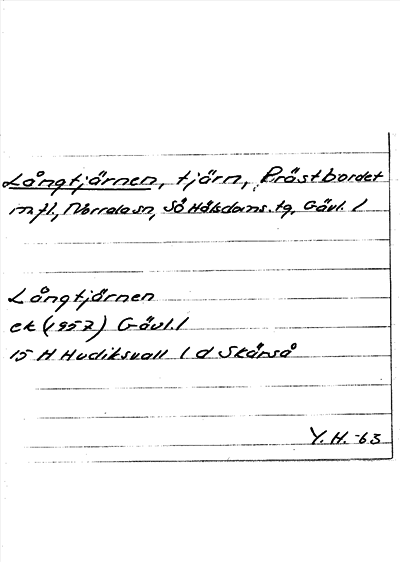 Långtjärnen, tjärn, Prästbordet
mfl, Norrala sn, Sö Hälsdoms. tg, Gävl. l
Långtjärnen
ek (1957) Gävl. l
15 H Hudiksvall 1 d Skärså
Y. H. -63